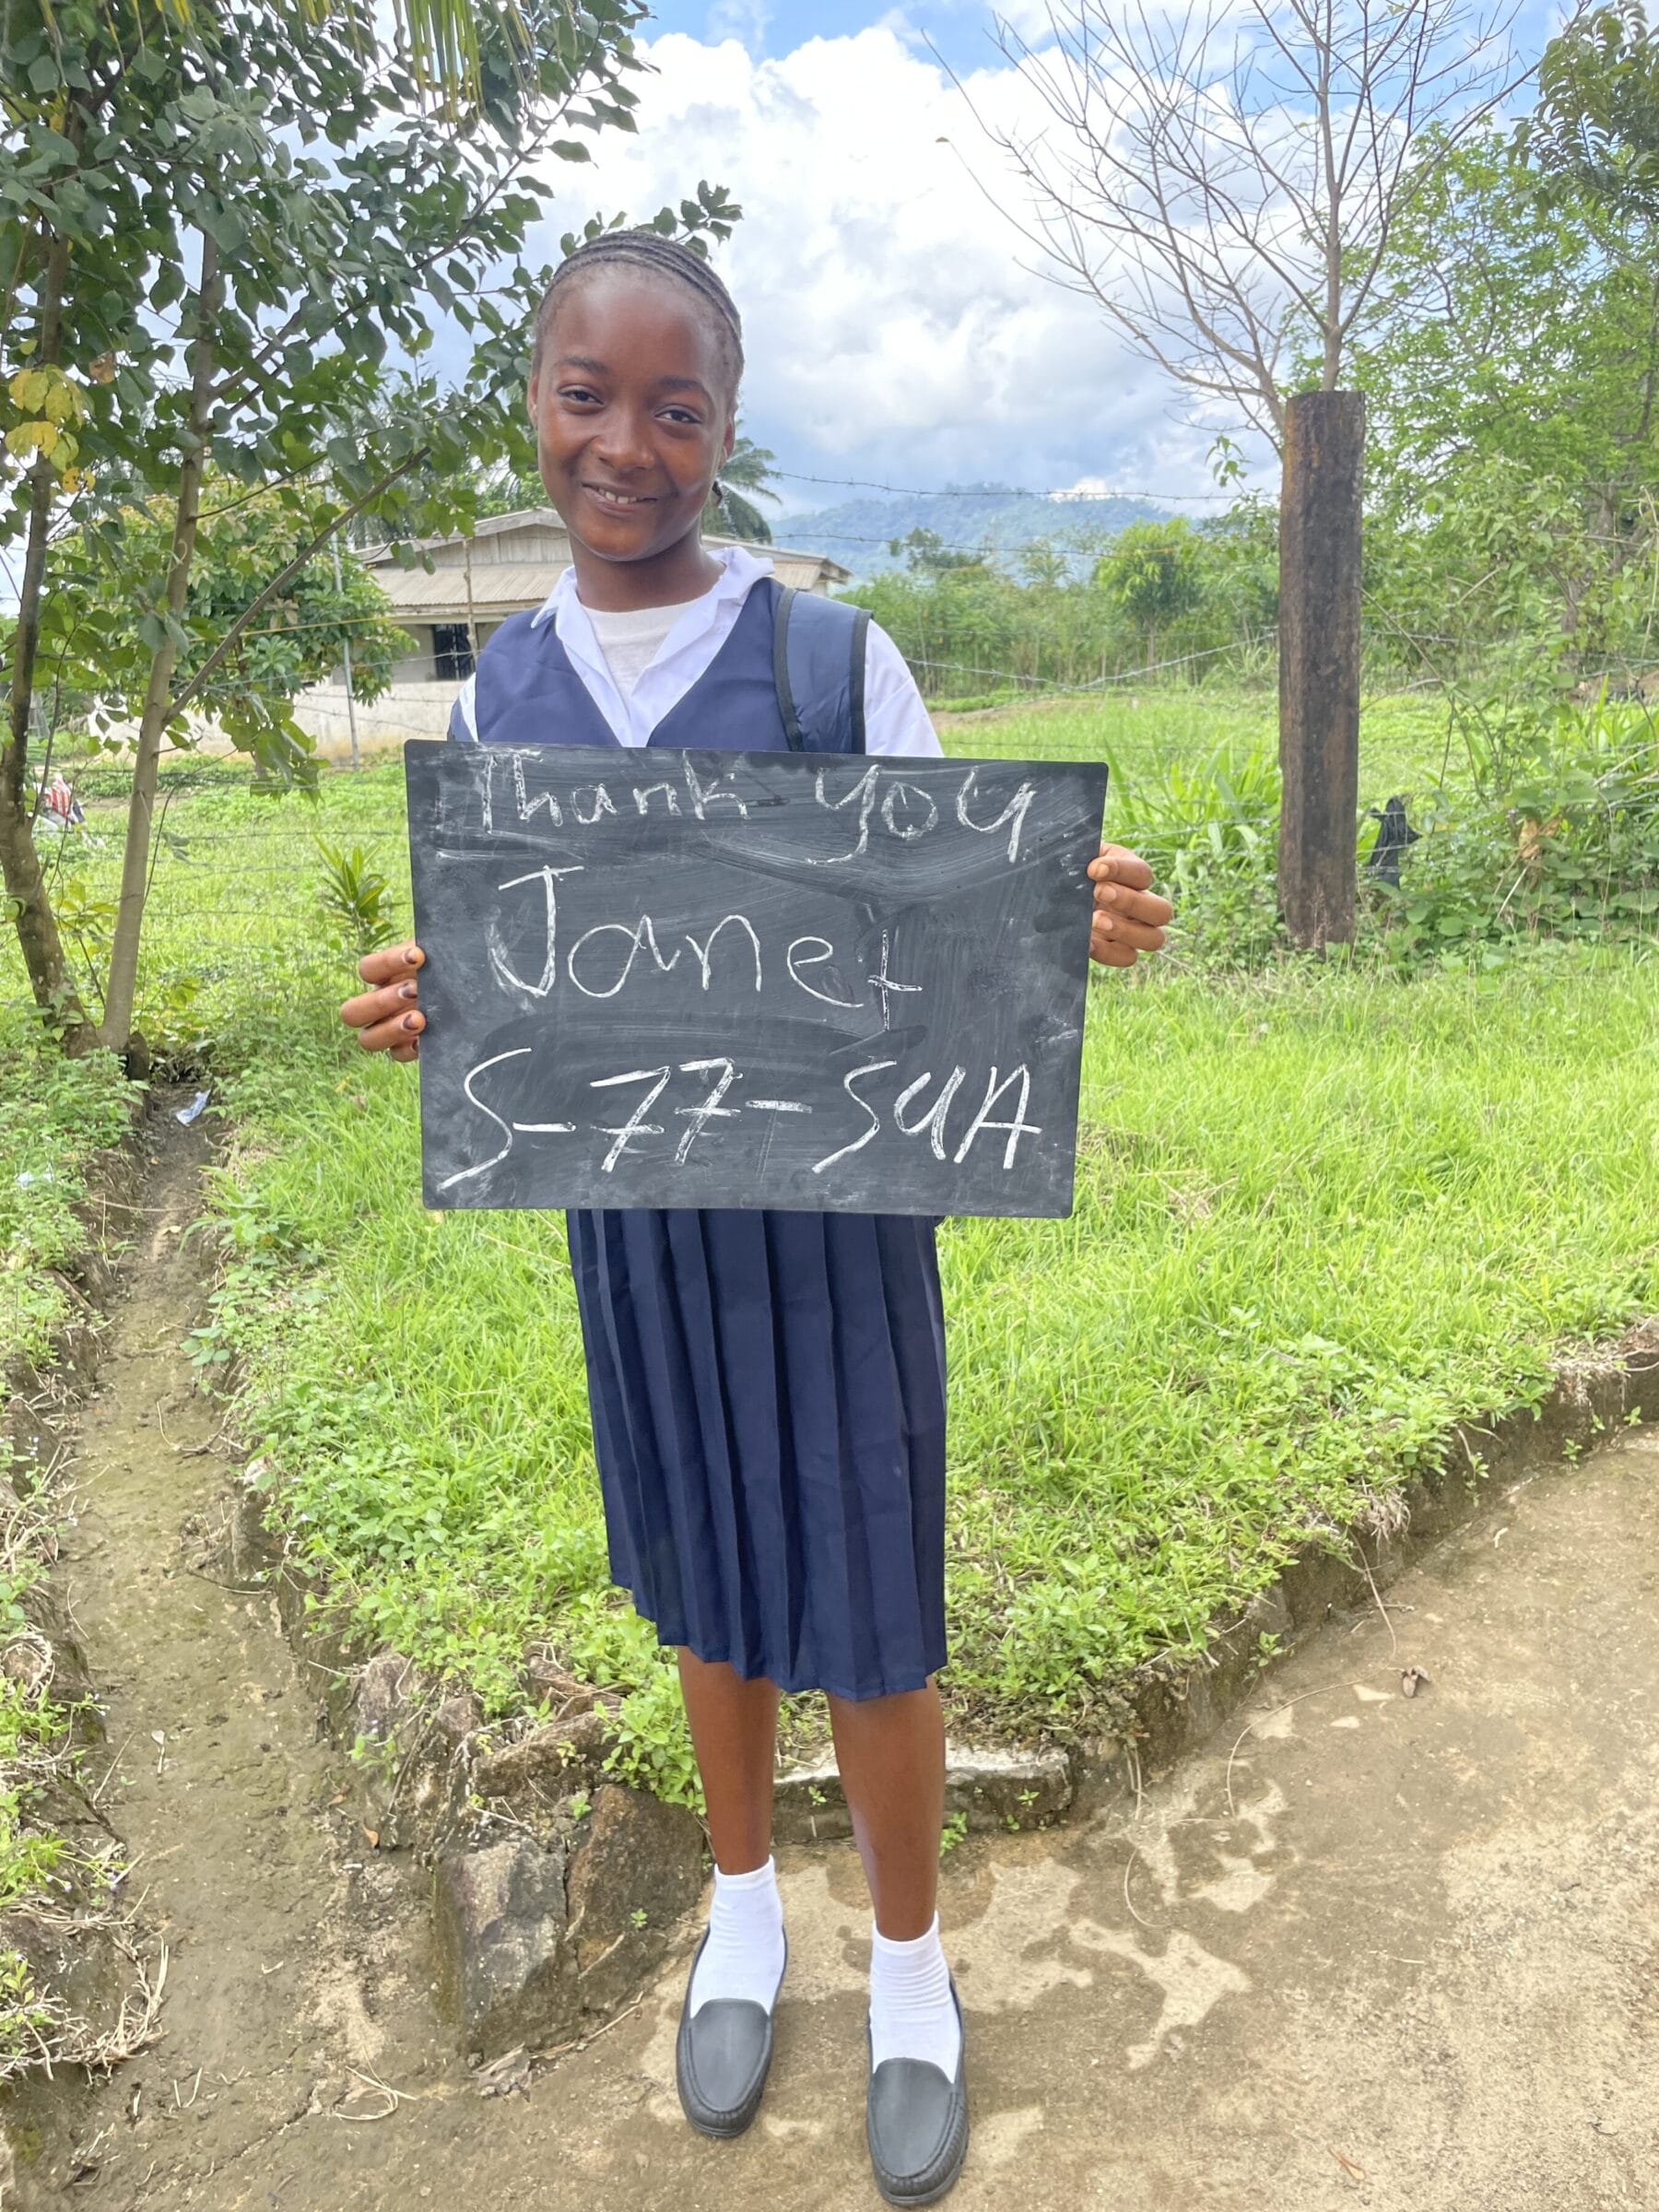 Thank you
Janet
S-77-SUA